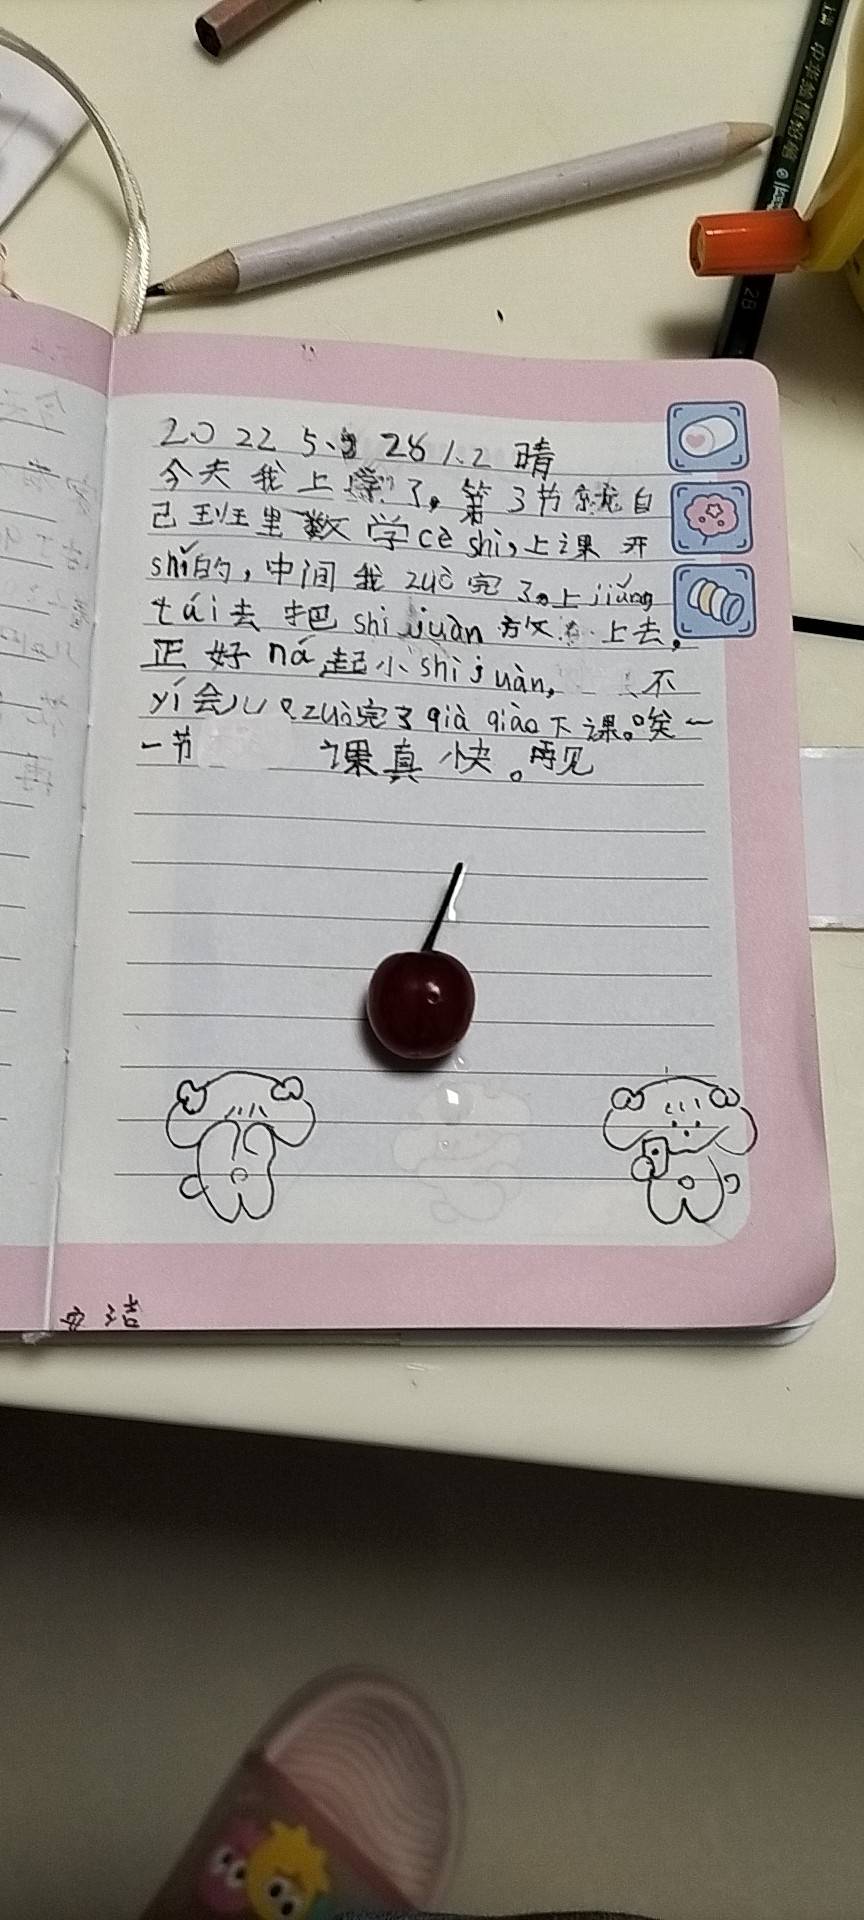 中华绘图铅笔
2022 5. 28 1.2 晴
今天我上学了，第3节就自
己班里数学cè shì，上课开
shǐ的，中间我zuò完了。上jiǎng
tái去把shì juàn放上去，
正好ná起小shì juàn，不
yí会儿zuò完了qià qiǎo下课。唉一
一节课真快。再见
洁